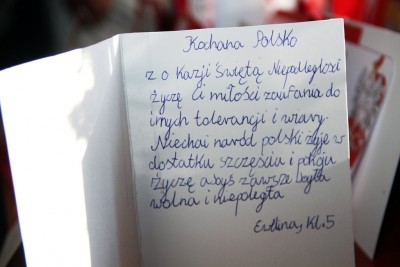 Kochana Polsko
z o kazji Święta Niepodległości
życzę Ci miłości zaufania do
innych tolerancji i wiary
Niechai naród polski żyje w
dostatku szczęściu i pokoju
życzę abyś zawsze była
wolna i niepoległa
Ewelina, Kl. 5